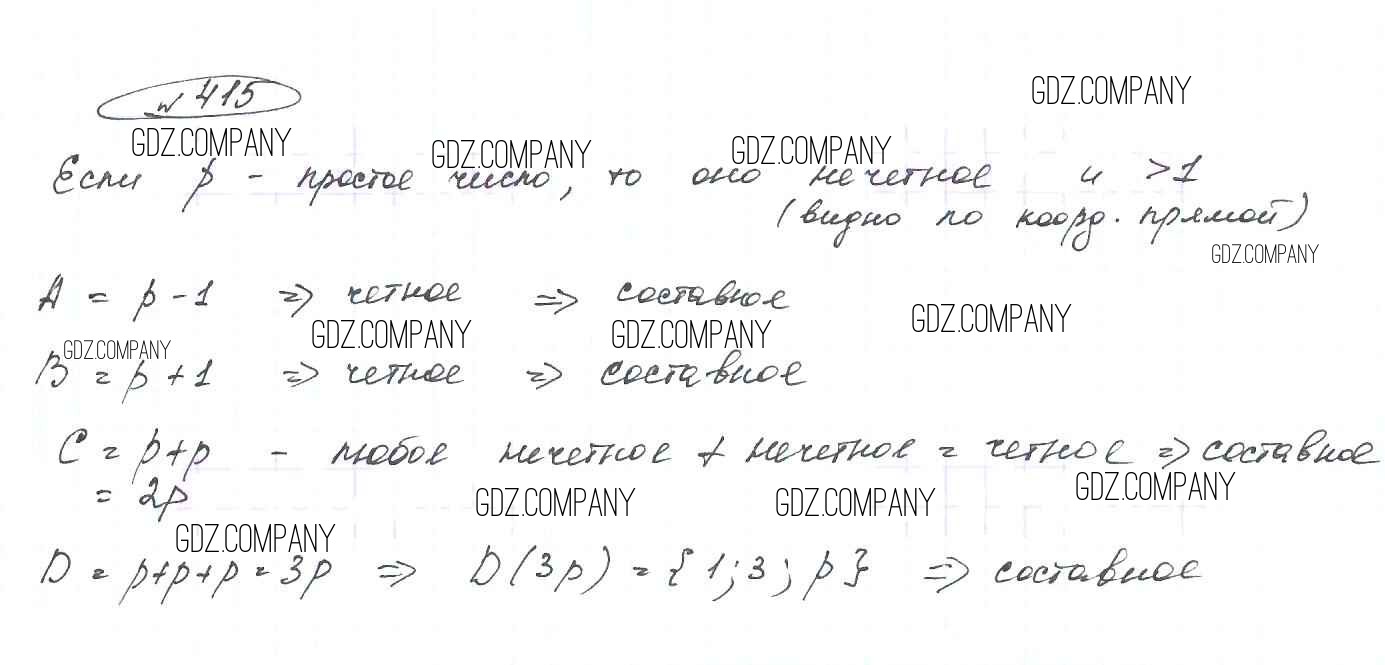 № 415
GDZ.COMPANY
GDZ.COMPANY GDZ.COMPANY GDZ.COMPANY
Если p - простое число, то оно нечетное и >1
(видно по коорд. прямой)
GDZ.COMPANY
A = p - 1 => четное => составное
GDZ.COMPANY GDZ.COMPANY GDZ.COMPANY
GDZ.COMPANY
B = p + 1 => четное => составное
C = p+p - любое нечетное + нечетное = четное => составное
= 2p
GDZ.COMPANY GDZ.COMPANY GDZ.COMPANY
GDZ.COMPANY
D = p+p+p = 3p => D(3p) = {1; 3; p} => составное